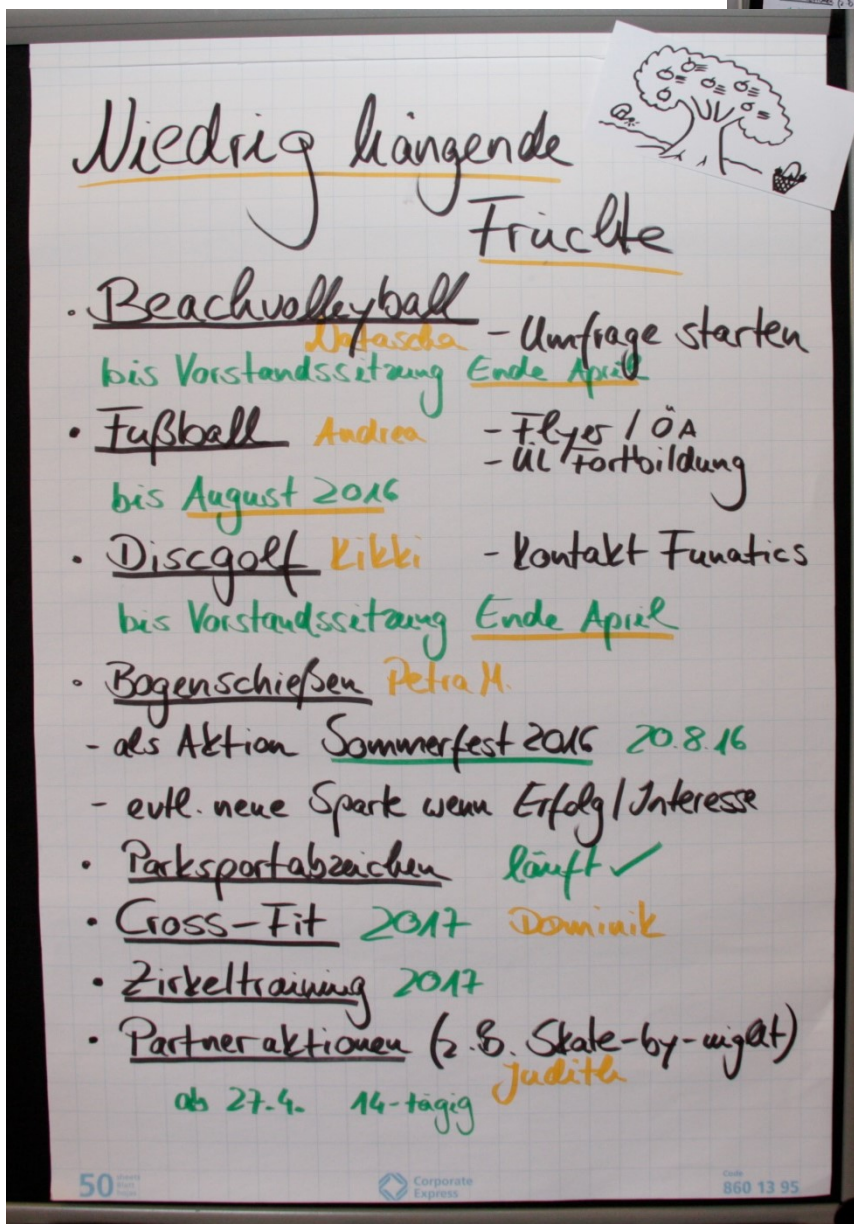 Niedrig hängende
Früchte
· Beachvolleyball
Natascha - Umfrage starten
bis Vorstandssitzung Ende April
· Fußball Andrea - Flyer / ÖA
- ÜL Fortbildung
bis August 2016
· Discgolf Kikki - Kontakt Funatics
bis Vorstandssitzung Ende April
· Bogenschießen Petra M.
- als Aktion Sommerfest 2016 20.8.16
- evtl. neue Spark wenn Erfolg / Interesse
· Parksportabzeichen läuft ✓
· Cross-Fit 2017 Dominik
· Zirkeltraining 2017
· Partneraktionen (z.B. Skate-by-night)
Judith
ab 27.4. 14-tägig
50 Corporate Express Code 860 13 95